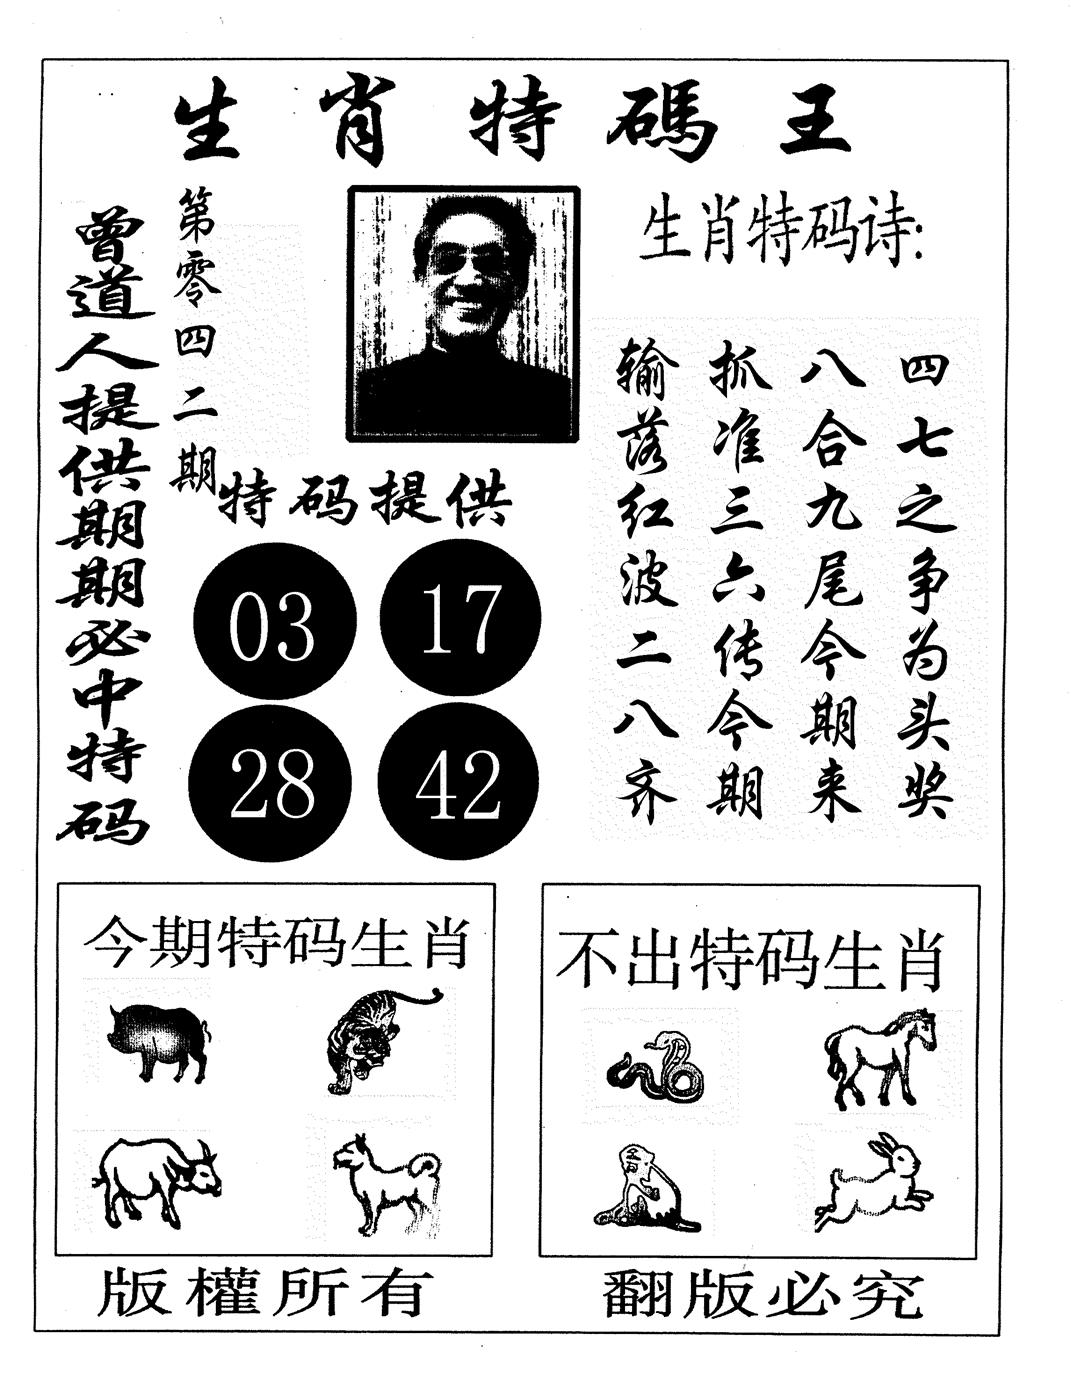 生肖特碼王
曾道人提供期期必中特码
第零四二期
特码提供
03 17
28 42
生肖特码诗:
四七之争为头奖
八合九尾今期来
抓准三六传今期
输落红波二八齐
今期特码生肖
不出特码生肖
版權所有
翻版必究